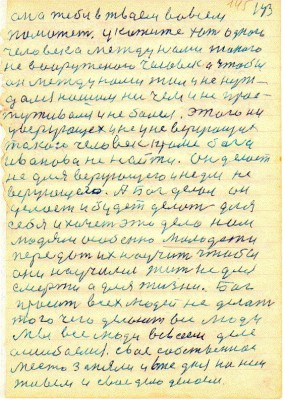 193
она тебе в твоем во всем
поможет. укажите хоть одного
человека между нами такого
не вооруженого человека чтобы
он между нами жил и не нуж-
дался нашим ни чем и не прос-
туживался и не болел. Этого ни
у верующего и не у неверующих
такого человека кроме бога
иванова не найти. Он делает
не для верующего и не для не
верующего. А Бог делал он
делает и будет делать для
себя и хочет это дело нам
людям особенно молодежи
передать их научить чтобы
они научились жить не для
смерти а для жизни. Бог
просит всех людей не делать
того чего делают все люди
Мы все люди во всем деле
ошибаемся. свое собственное
место заняли и уже для на ней
живем и свое дело делаем.